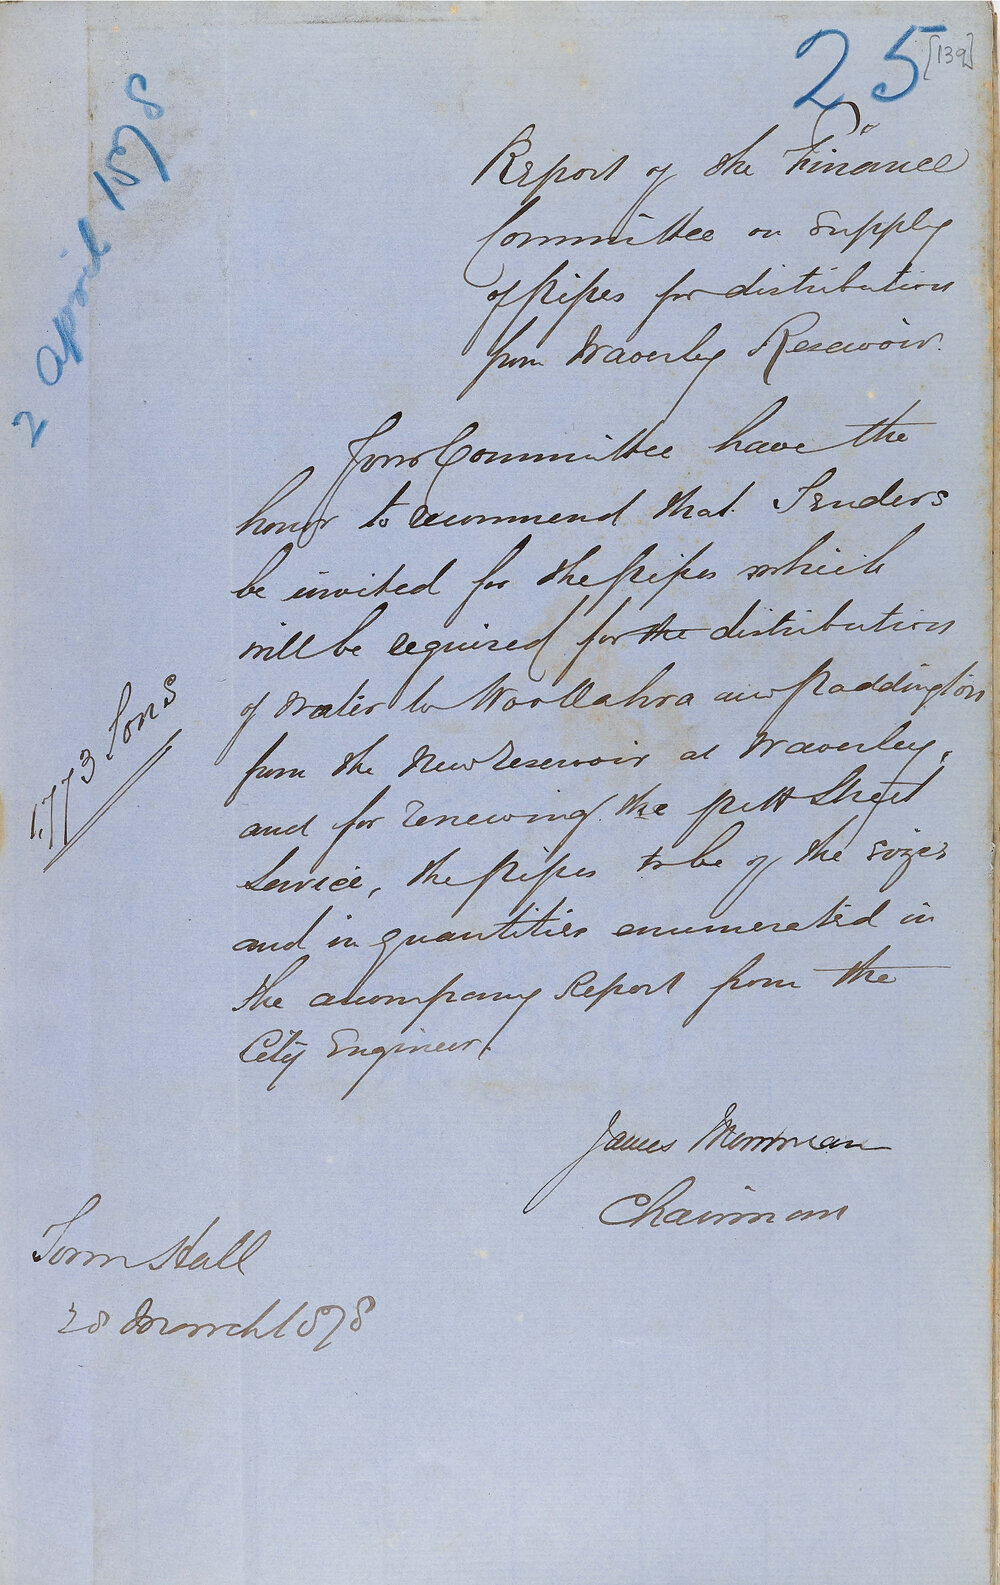 25
[139]
2 April 1878
Report of the Finance
Committee on supply
of pipes for distribution
from Waverley Reservoir.
Your Committee have the
honor to recommend that Tenders
be invited for the pipes which
will be required for the distribution
of water to Woollahra and Paddington
from the New reservoir at Waverley,
and for renewing the pitt Street
Service, the pipes to be of the sizes
and in quantities enumerated in
the accompany Report from the
City Engineer.
1,773 Tons
James Merriman
Chairman
Town Hall
28 March 1878